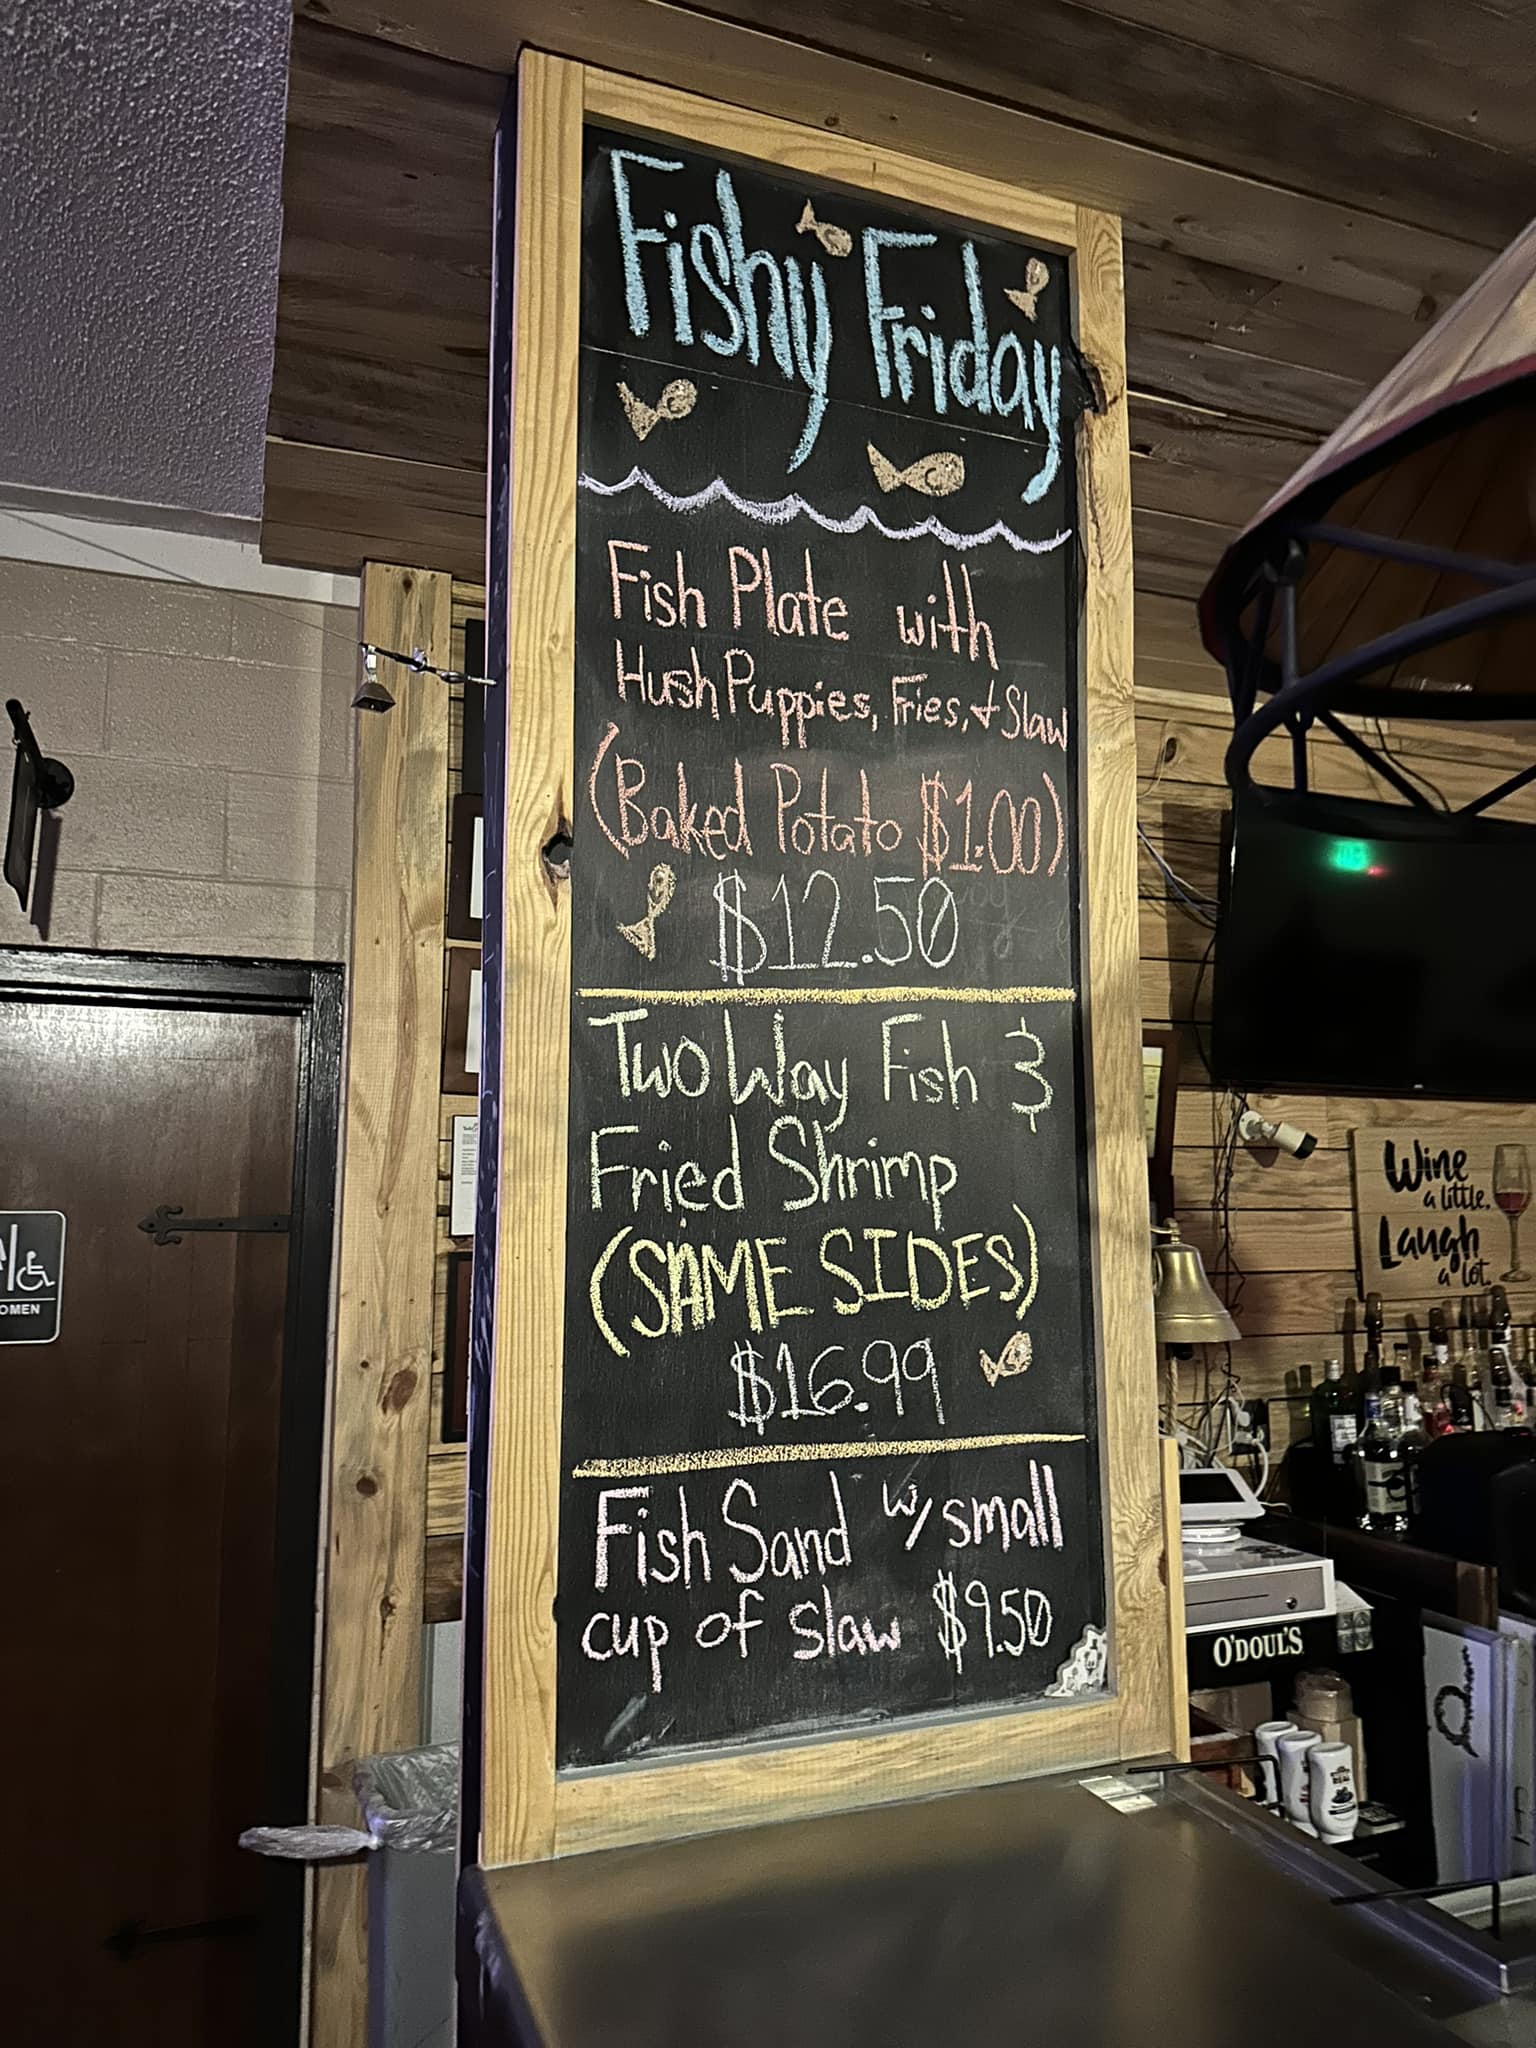 Fishy Friday
Fish Plate with
Hush Puppies, Fries, & Slaw
(Baked Potato $1.00)
$12.50
Two Way Fish &
Fried Shrimp
(SAME SIDES)
$16.99
Fish Sand w/ small
cup of slaw $9.50
OMEN
Wine
a little.
Laugh
a lot.
O'DOUL'S